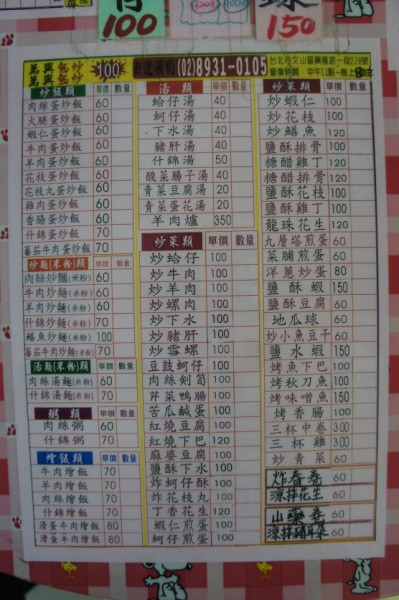 100
150
萬興熱炒 100 (02)8931-0105 台北市文山區興隆路一段22號
營業時間 中午11點~晚上8點
炒飯類 單價 數量
肉絲蛋炒飯 60
火腿蛋炒飯 60
蝦仁蛋炒飯 60
牛肉蛋炒飯 60
羊肉蛋炒飯 60
花枝蛋炒飯 60
花枝丸蛋炒飯 60
雞肉蛋炒飯 60
香腸蛋炒飯 60
什錦蛋炒飯 70
蕃茄牛肉炒飯 70
炒麵(米粉)類 單價 數量
肉絲炒麵(米粉) 60
牛肉炒麵(米粉) 60
羊肉炒麵(米粉) 60
什錦炒麵(米粉) 70
鱔魚炒麵(米粉) 100
蕃茄牛肉炒麵(米粉) 70
湯麵(米粉)類 單價 數量
肉絲湯麵(米粉) 60
什錦湯麵(米粉) 70
粥類 單價 數量
肉絲粥 60
什錦粥 70
燴飯類 單價 數量
牛肉燴飯 70
羊肉燴飯 70
肉絲燴飯 70
什錦燴飯 70
滑蛋牛肉燴飯 80
滑蛋羊肉燴飯 80
湯類 單價 數量
蛤仔湯 40
蚵仔湯 40
下水湯 40
豬肝湯 40
什錦湯 50
酸菜腸子湯 40
青菜豆腐湯 20
青菜蛋花湯 20
羊肉爐 350
炒菜類 單價 數量
炒蛤仔 100
炒牛肉 100
炒羊肉 100
炒螺肉 100
炒下水 100
炒豬肝 100
炒雪螺 100
豆鼓蚵仔 100
肉絲劍筍 100
芹菜鴨腸 100
苦瓜鹹蛋 100
紅燒豆腐 100
紅燒下巴 120
麻婆豆腐 100
鹽酥下水 100
炸蚵仔酥 100
炸花枝丸 100
丁香花生 100
蝦仁煎蛋 100
蚵仔煎蛋 100
炒菜類 單價 數量
炒蝦仁 100
炒花枝 100
炒鱔魚 120
鹽酥排骨 100
糖醋雞丁 100
糖醋排骨 100
鹽酥花枝 100
鹽酥雞丁 100
龍珠花生 100
九層塔煎蛋 60
菜脯煎蛋 60
洋蔥炒蛋 80
鹽酥蝦 150
鹽酥豆腐 60
地瓜球 60
炒小魚豆干 60
鹽水蝦 150
烤魚下巴 100
烤秋刀魚 100
烤味噌魚 150
烤香腸 100
三杯中卷 300
三杯雞 300
炒青菜 60
炸春卷 60
涼拌花生 60
山藥卷 60
涼拌豬耳朵 60